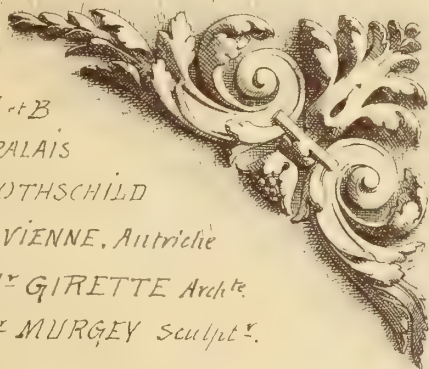 et B
PALAIS
OTHSCHILD
VIENNE. Autriche
GIRETTE Archte.
MURGEY Sculptr.